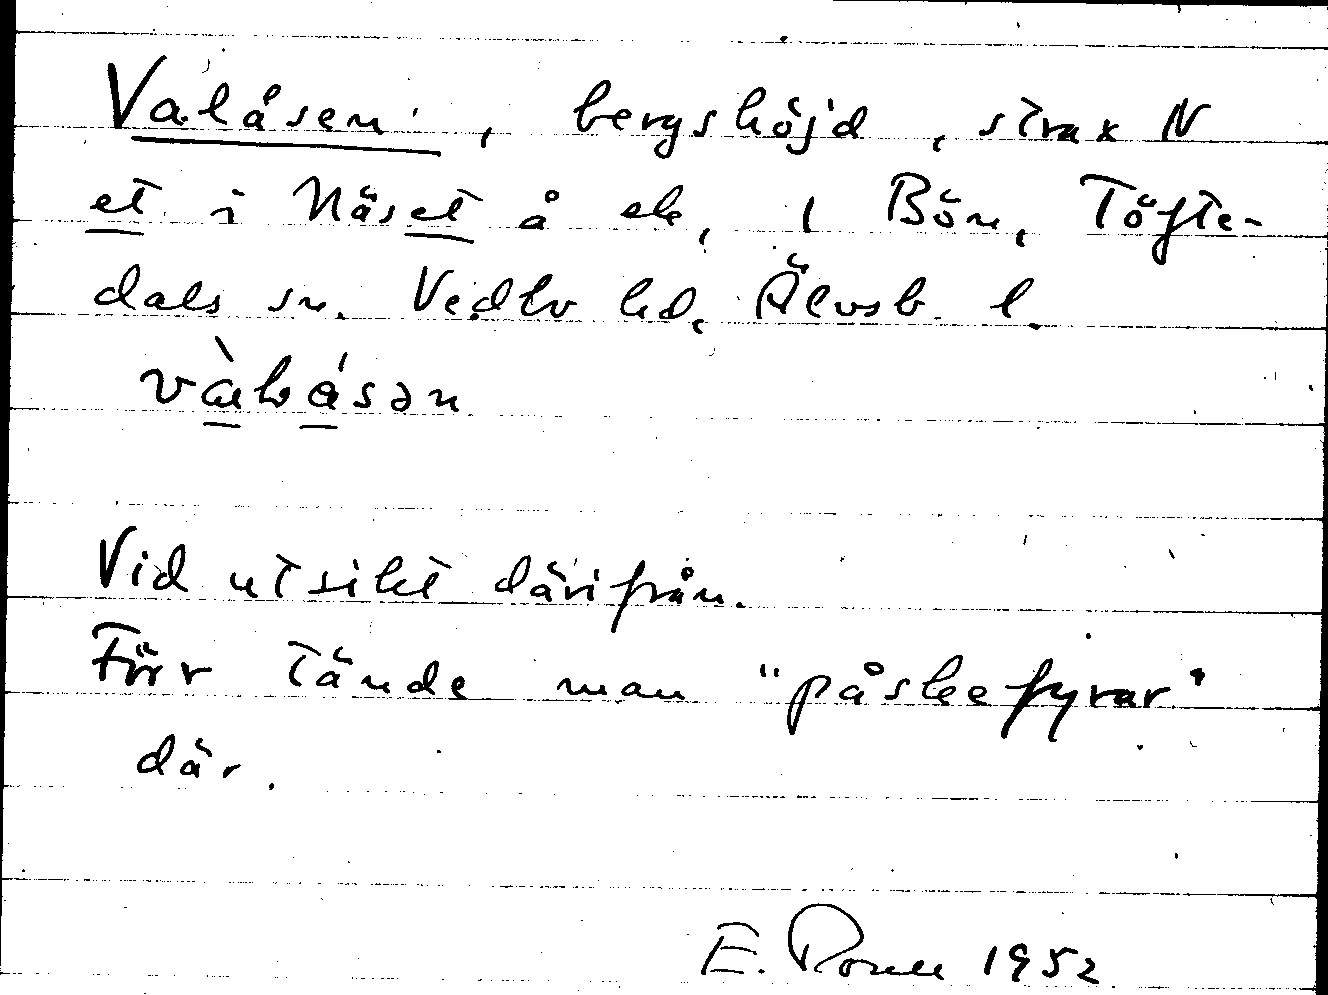 Valåsen, bergshöjd, strax N
et i Näset å ek, 1 Bön, Töfte-
dals sn. Vedbo hd, Älvsb. l.
Vid utsikt därifrån.
Förr tände man "påskefyrar"
där.
E. 1952